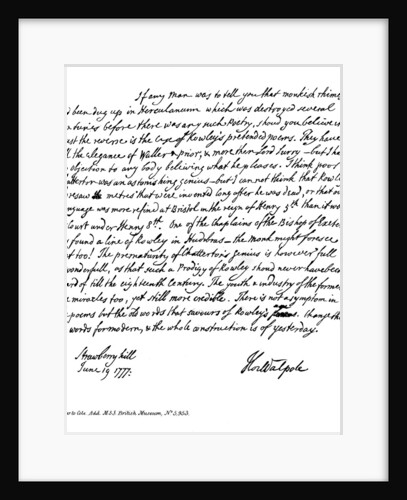 If any Man was to tell you that monkish rhime
d been dug up in Herculaneum which was destroyed several
nturies before there was any such Poetry, should you believe i
st the reverse is the case of Rowley's pretended poems. They have
l the elegance of Waller & Prior, & more than Lord Surry — but I ha
objection to any body believing what he pleases. I think poor
atterton was an astonishing genius — but I can not think that Rowle
resaw the metres that were invented long after he was dead, or that ou
nguage was more refined at Bristol in the reign of Henry 5th than it wa
Court under Henry 8th. One of the Chaplains of the Bishop of Exete
found a line of Rowley in Hudibras — the monk might foresee
t too! The prematurity of Chatterton's genius is however full
wonderfull, as that such a Prodigy as Rowley should never have been
ard of till the eighteenth Century. The youth & industry of the former
e miracles too, yet still more credible. There is not a symptom in
poems but the old words that savours of Rowley's . Change the
words for modern, & the whole construction is of yesterday.
Strawberry hill
June 19 1777.
Hor Walpole
er to Cole. Add. MSS. British Museum, No. 5,953.